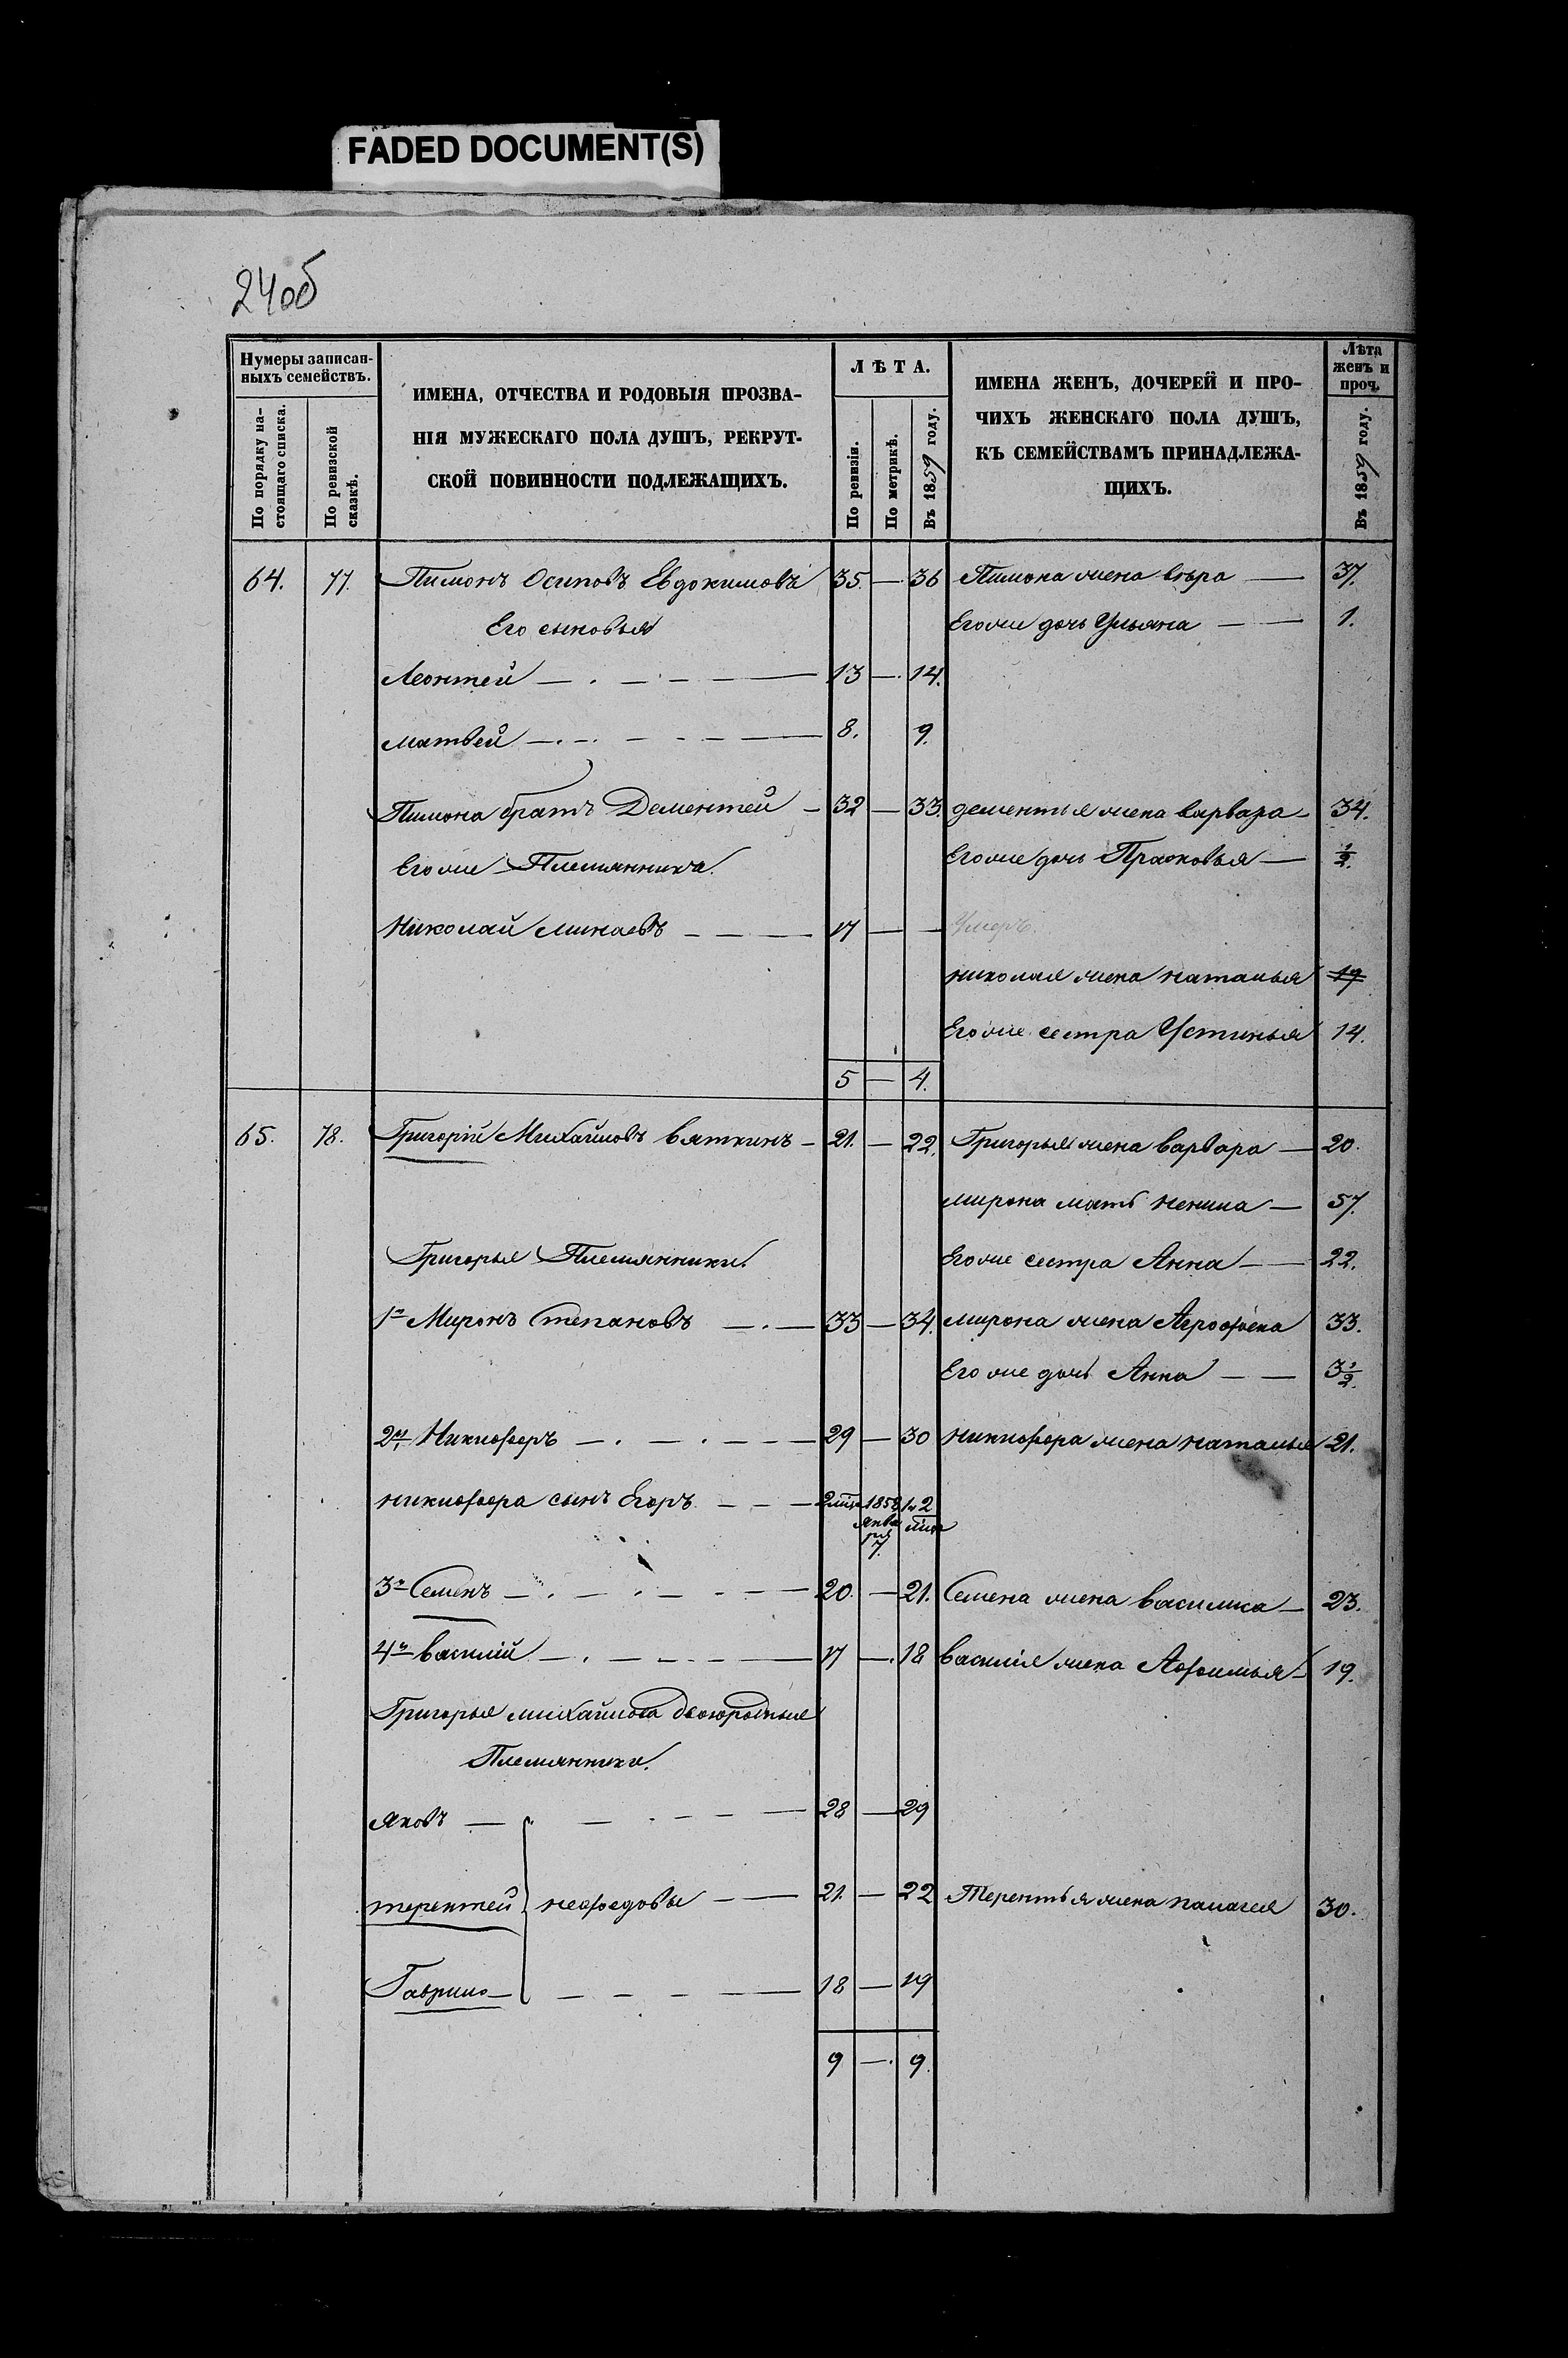 FADED DOCUMENT(S)
24об
Нумеры записан-
ныхъ семействъ.
По порядку на-
стоящаго списка.
По ревизской
сказкѣ.
ИМЕНА, ОТЧЕСТВА И РОДОВЫЯ ПРОЗВА-
НІЯ МУЖЕСКАГО ПОЛА ДУШЪ, РЕКРУТ-
СКОЙ ПОВИННОСТИ ПОДЛЕЖАЩИХЪ.
ЛѢТА.
По ревизіи.
По метрикѣ.
Въ 1859 году.
ИМЕНА ЖЕНЪ, ДОЧЕРЕЙ И ПРО-
ЧИХЪ ЖЕНСКАГО ПОЛА ДУШЪ,
КЪ СЕМЕЙСТВАМЪ ПРИНАДЛЕЖА-
ЩИХЪ.
Лѣта
женъ и
проч.
Въ 1859 году.
64. 77. Пимонъ Осиповъ Евдокимовъ 35. — 36 Пимона жена вѣра — 37.
Его сыновья Егоже дочь Ульяна — 1.
Леонтей — 13 — 14.
матвей — 8. 9.
Пимона братъ Дементей — 32 — 33. дементья жена варвара — 34.
Егоже Племянника Егоже дочь Прасковья — ½.
Николай минаевъ — 17 — — Умеръ.
николая жена наталья 19
Егоже сестра Устинья 14.
5 — 4.
65. 78. Григорій Михайловъ вяткинъ — 21. — 22. Григорья жена варвара — 20.
мирона мать ненила — 57.
Григорья Племянники. Егоже сестра Анна — 22.
1й Миронъ Степановъ — 33 — 34. мирона жена Агрофена 33.
Егоже дочь Анна — 3½.
2й Никифоръ — 29 — 30 никифора жена наталья 21.
никифора сынъ Егоръ — 2 мѣся 1858 Января 7. 1 и 2 мѣся
3й Семенъ — 20. — 21. Семена жена василиса — 23.
4й василій — 17 — 18 василія жена Афимья — 19.
Григорья михайлова двоюродные
Племянники.
яковъ — 28 — 29
терентей нефедовы — 21. — 22 Терентья жена палагея 30.
Гаврило — 18 — 19
9 — 9.